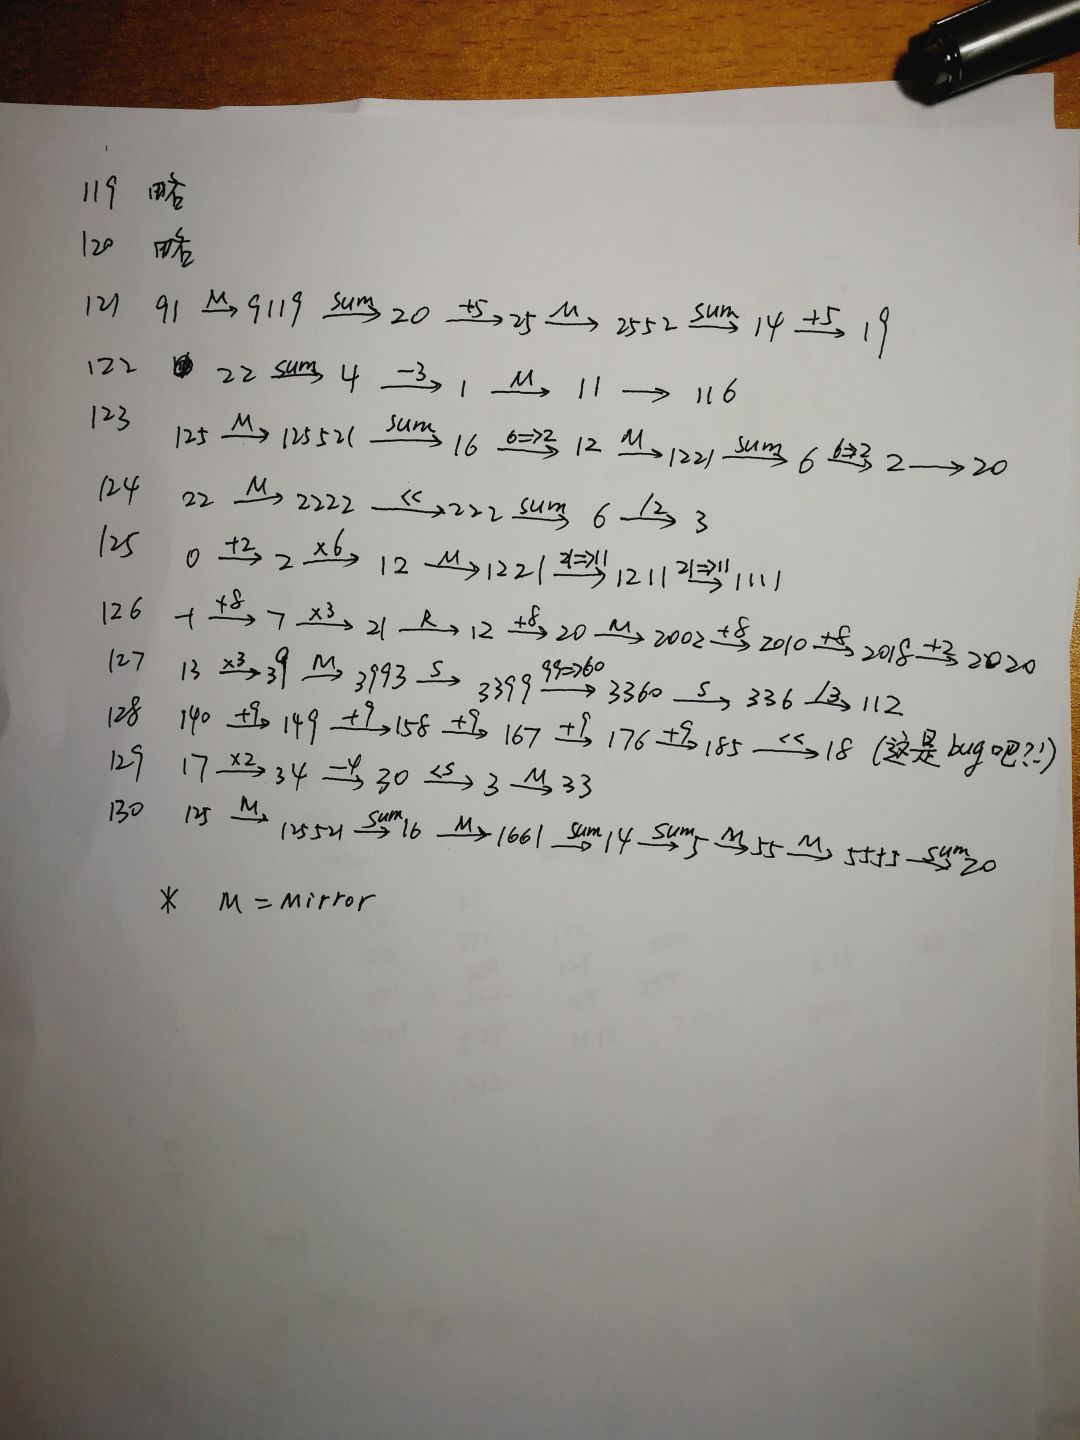 119 略
120 略
121 91 M→ 9119 sum→ 20 +5→ 25 M→ 2552 sum→ 14 +5→ 19
122 22 sum→ 4 -3→ 1 M→ 11 → 116
123 125 M→ 125521 sum→ 16 6=>2→ 12 M→ 1221 sum→ 6 6=>2→ 2 → 20
124 22 M→ 2222 <<→ 222 sum→ 6 /2→ 3
125 0 +2→ 2 ×6→ 12 M→ 1221 21=>11→ 1211 21=>11→ 1111
126 -1 +8→ 7 ×3→ 21 R→ 12 +8→ 20 M→ 2002 +8→ 2010 +8→ 2018 +2→ 2020
127 13 ×3→ 39 M→ 3993 S→ 3399 99=>60→ 3360 S→ 336 /3→ 112
128 140 +9→ 149 +9→ 158 +9→ 167 +9→ 176 +9→ 185 <<→ 18 (这是bug吧?!)
129 17 ×2→ 34 -4→ 30 <S→ 3 M→ 33
130 125 M→ 125521 sum→ 16 M→ 1661 sum→ 14 sum→ 5 M→ 55 M→ 5555 sum→ 20
* M = Mirror